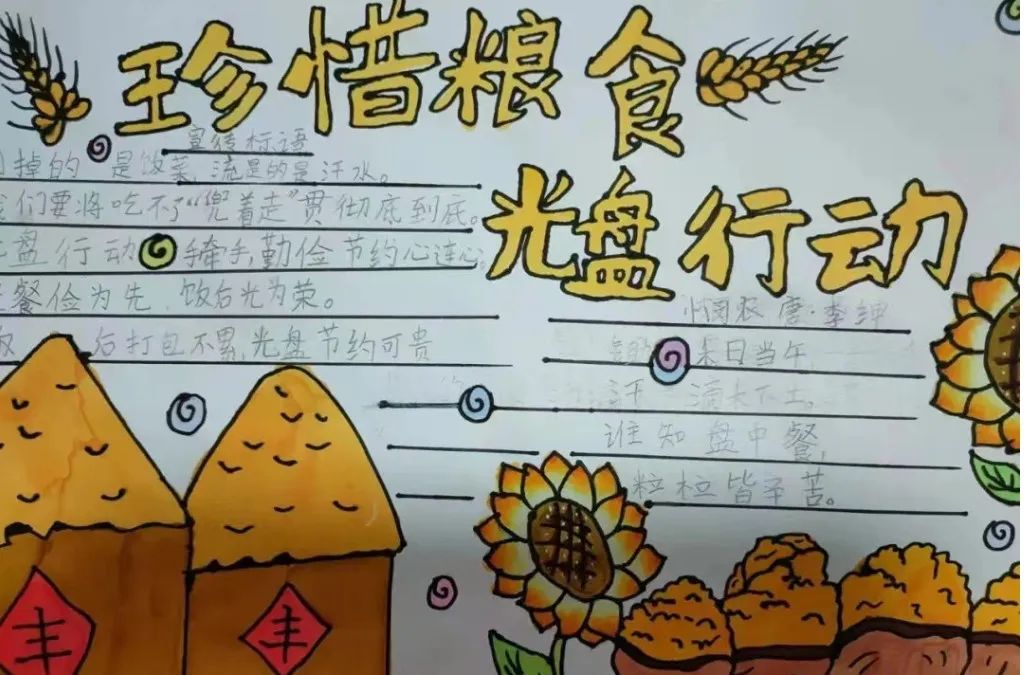 珍惜粮食
光盘行动
宣传标语
掉的 是饭菜,流是的是汗水。
们要将吃不了“兜着走”贯彻底到底。
盘行动 手牵手,勤俭节约心连心。
餐俭为先,饭后光为荣。
后打包不累,光盘节约可贵
悯农 唐·李绅
禾日当午,
汗 滴禾下土。
谁知盘中餐,
粒粒皆辛苦。
丰
丰